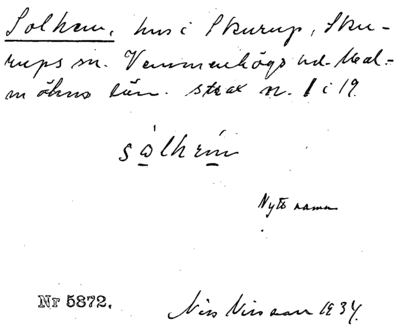 Solhem, hus i Skurup, Sku-
rups sn. Vemmenhögs hd. Mal-
möhus län. strax n. 1 i 19.
sòlhèm
Nytt namn
Nr 5872. Nils Nilsson 1934.